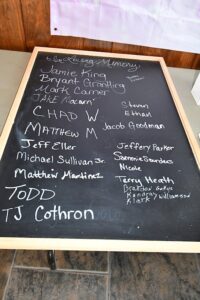 In Loving Memory
Jamie King
Bryant Grantling
Mark Carner
JAKE
CHAD W
Matthew M
Jeff Eller
Michael Sullivan Jr.
Matthew Mardinez
TODD
TJ Cothron
Steven
Ethan
Jacob Goodman
Jeffery Parker
Saunders
Nicole
Terry Heath
Brandon
Williamson